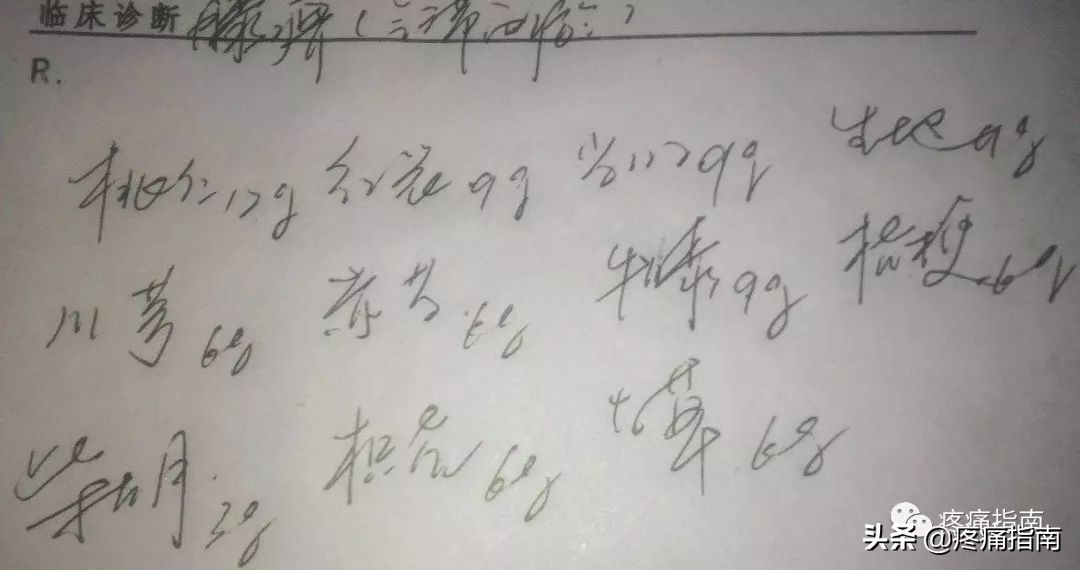 临床诊断 膝痹
R.
桃仁12g 红花9g 当归9g 生地9g
川芎6g 赤芍6g 牛膝9g 桔梗6g
柴胡3g 枳壳6g 甘草6g
疼痛指南
头条 @疼痛指南